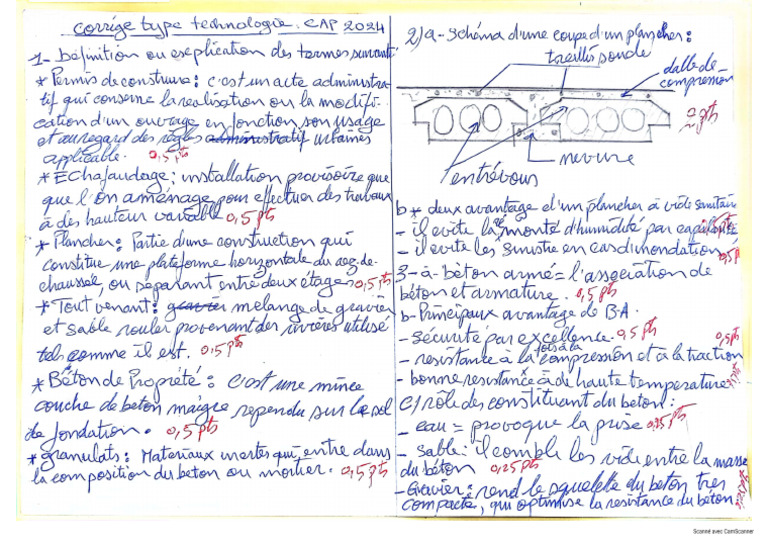 Corrigé type technologie. CAP 2024
1- Définition ou explication des termes suivant
* Permis de construire : c'est un acte administra-
tif qui conserne la realisation ou la modifi-
cation d'un ouvrage en fonction son usage
et au regard des règles administratif urbaines
applicable. 0,5 pts
* Echafaudage ; installation provisoire que
que l'on aménage pour effectuer des travaux
à des hauteur variable 0,5 pts
* Plancher : Partie d'une construction qui
constitue une plateforme horizontale du rez de-
chaussée, ou séparant entre deux étages 0,5 pts
* Tout venant : gravier melange de gravier
et sable rouler provenant des rivières utilisé
tels comme il est. 0,5 pts
* Béton de Propriété : c'est une mince
couche de béton maigre rependu sur le sol
de fondation. 0,5 pts
* granulats : Materiaux inertes qui entre dans
la composition du beton ou mortier. 0,5 pts
2)a- Schéma d'une coupe d'un plancher :
treillis soudé
dalle de-
compression
2 pts
nervure
entrevous
b * deux avantage d'un plancher à vide sanitaire
- il evite la monté d'humidité par capilarité 0,5 pts
- il evite les sinistre en cas d'inondation 0,5 p
3- a- bèton armé = l'association de
béton et armature. 0,5 pts
b- Principaux avantage de B.A.
- Sécurité par excellence. 0,5 pts
- resistance à la fois à la compression et à la traction 0,5 pts
- bonne resistance à de haute temperature
c) rôle des constituant du béton :
- eau = provoque la prise 0,25 pts
- sable : il comble les vide entre la masse
du béton 0,25 pts
- Gravier : rend le squelette du beton tres
compacté, qui optimise la resistance du béton
Scanné avec CamScanner